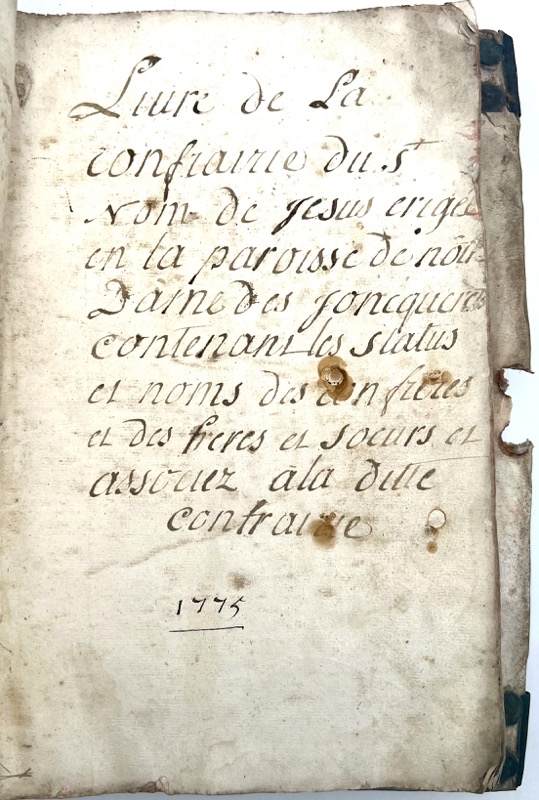 Livre de La
confrairie du St
Nom de Jesus erigée
en la paroisse de nôtre
Dame des Joncqueres
contenant les status
et noms des confreres
et des freres et soeurs et
associez ala ditte
confrairie
1775